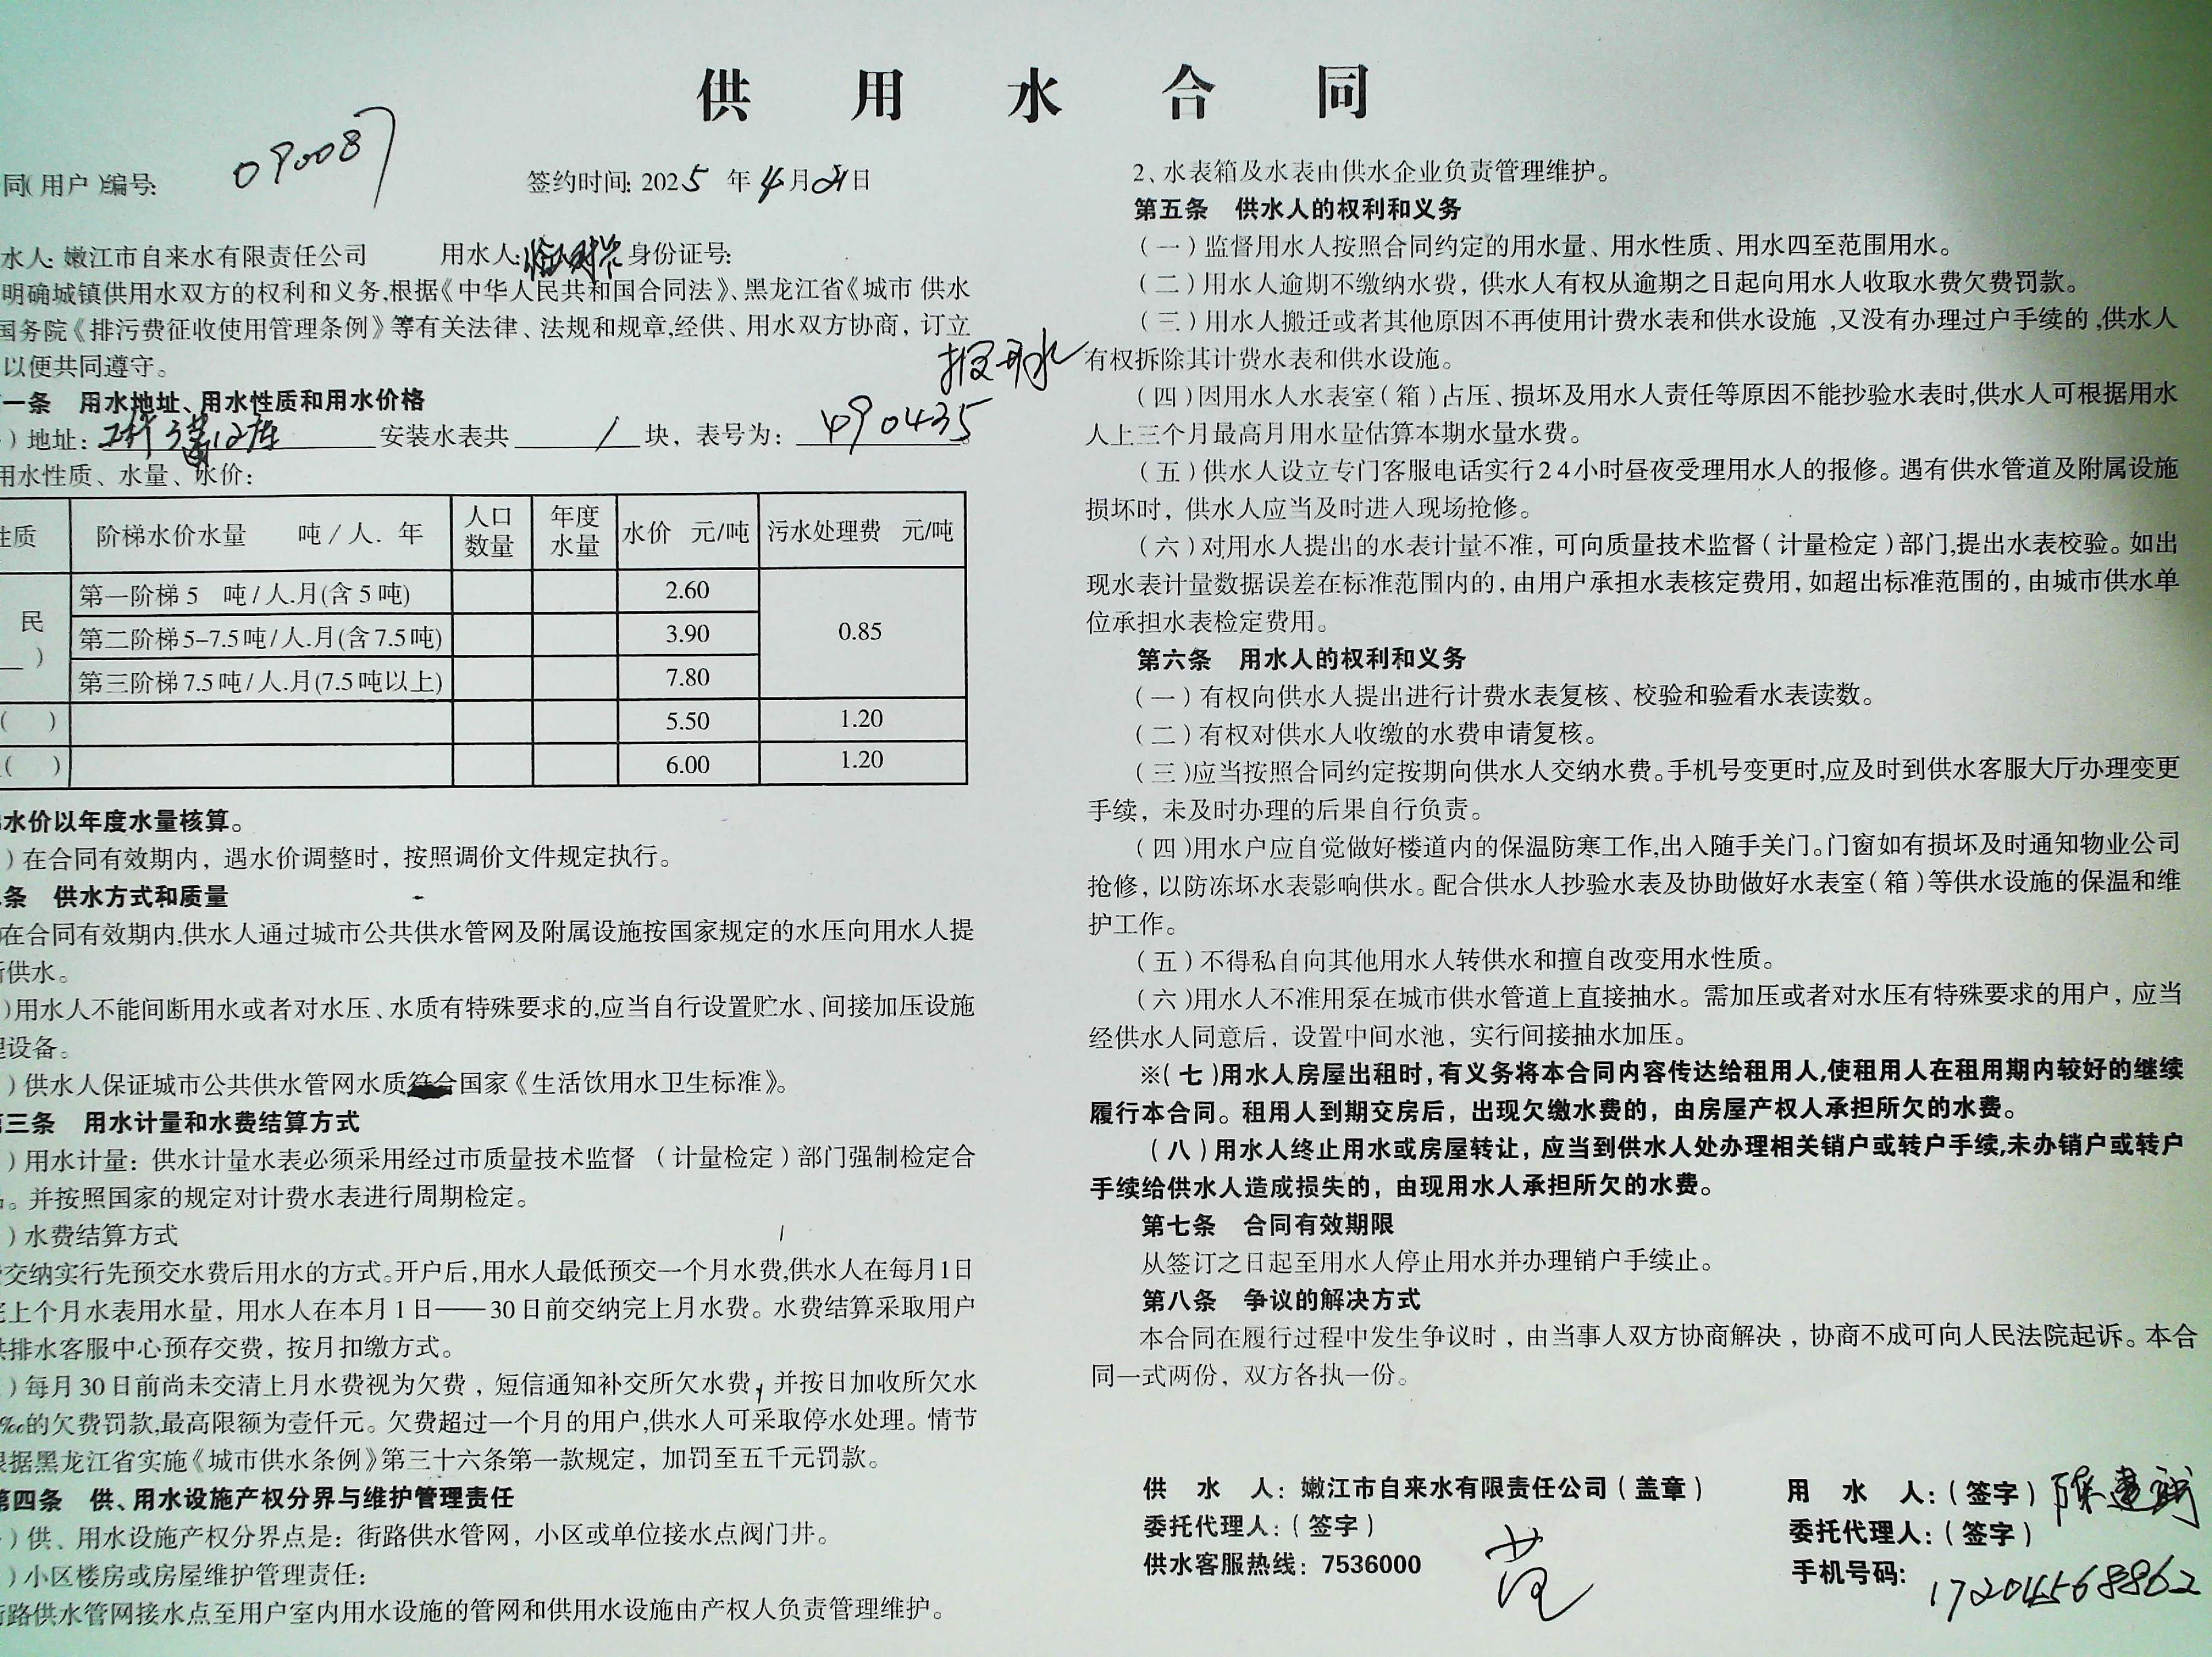 供 用 水 合 同
同(用户)编号: 090087
签约时间: 2025 年 4 月 21 日
水人: 嫩江市自来水有限责任公司 用水人: 身份证号:
明确城镇供用水双方的权利和义务,根据《中华人民共和国合同法》、黑龙江省《城市 供水
国务院《排污费征收使用管理条例》等有关法律、法规和规章,经供、用水双方协商，订立
以便共同遵守。
报开水
一条 用水地址、用水性质和用水价格
)地址: 安装水表共 1 块，表号为: 090435
用水性质、水量、水价:
性质 阶梯水价水量 吨/人.年 人口数量 年度水量 水价 元/吨 污水处理费 元/吨
民 第一阶梯 5 吨/人.月(含 5 吨) 2.60 0.85
第二阶梯 5-7.5 吨/人.月(含 7.5 吨) 3.90
) 第三阶梯 7.5 吨/人.月(7.5 吨以上) 7.80
( ) 5.50 1.20
( ) 6.00 1.20
水价以年度水量核算。
)在合同有效期内，遇水价调整时，按照调价文件规定执行。
条 供水方式和质量
在合同有效期内,供水人通过城市公共供水管网及附属设施按国家规定的水压向用水人提
供水。
)用水人不能间断用水或者对水压、水质有特殊要求的,应当自行设置贮水、间接加压设施
设备。
)供水人保证城市公共供水管网水质符合国家《生活饮用水卫生标准》。
三条 用水计量和水费结算方式
)用水计量：供水计量水表必须采用经过市质量技术监督 (计量检定)部门强制检定合
。并按照国家的规定对计费水表进行周期检定。
)水费结算方式
交纳实行先预交水费后用水的方式。开户后,用水人最低预交一个月水费,供水人在每月1日
上个月水表用水量，用水人在本月 1 日——30 日前交纳完上月水费。水费结算采取用户
排水客服中心预存交费，按月扣缴方式。
)每月 30 日前尚未交清上月水费视为欠费，短信通知补交所欠水费，并按日加收所欠水
‰的欠费罚款,最高限额为壹仟元。欠费超过一个月的用户,供水人可采取停水处理。情节
据黑龙江省实施《城市供水条例》第三十六条第一款规定，加罚至五千元罚款。
第四条 供、用水设施产权分界与维护管理责任
)供、用水设施产权分界点是：街路供水管网，小区或单位接水点阀门井。
)小区楼房或房屋维护管理责任:
路供水管网接水点至用户室内用水设施的管网和供用水设施由产权人负责管理维护。
2、水表箱及水表由供水企业负责管理维护。
第五条 供水人的权利和义务
(一)监督用水人按照合同约定的用水量、用水性质、用水四至范围用水。
(二)用水人逾期不缴纳水费，供水人有权从逾期之日起向用水人收取水费欠费罚款。
(三)用水人搬迁或者其他原因不再使用计费水表和供水设施,又没有办理过户手续的,供水人
有权拆除其计费水表和供水设施。
(四)因用水人水表室(箱)占压、损坏及用水人责任等原因不能抄验水表时,供水人可根据用水
人上三个月最高月用水量估算本期水量水费。
(五)供水人设立专门客服电话实行24小时昼夜受理用水人的报修。遇有供水管道及附属设施
损坏时，供水人应当及时进入现场抢修。
(六)对用水人提出的水表计量不准，可向质量技术监督(计量检定)部门,提出水表校验。如出
现水表计量数据误差在标准范围内的，由用户承担水表核定费用，如超出标准范围的，由城市供水单
位承担水表检定费用。
第六条 用水人的权利和义务
(一)有权向供水人提出进行计费水表复核、校验和验看水表读数。
(二)有权对供水人收缴的水费申请复核。
(三)应当按照合同约定按期向供水人交纳水费。手机号变更时,应及时到供水客服大厅办理变更
手续，未及时办理的后果自行负责。
(四)用水户应自觉做好楼道内的保温防寒工作,出入随手关门。门窗如有损坏及时通知物业公司
抢修，以防冻坏水表影响供水。配合供水人抄验水表及协助做好水表室(箱)等供水设施的保温和维
护工作。
(五)不得私自向其他用水人转供水和擅自改变用水性质。
(六)用水人不准用泵在城市供水管道上直接抽水。需加压或者对水压有特殊要求的用户，应当
经供水人同意后，设置中间水池，实行间接抽水加压。
※(七)用水人房屋出租时,有义务将本合同内容传达给租用人,使租用人在租用期内较好的继续
履行本合同。租用人到期交房后，出现欠缴水费的，由房屋产权人承担所欠的水费。
(八)用水人终止用水或房屋转让，应当到供水人处办理相关销户或转户手续,未办销户或转户
手续给供水人造成损失的，由现用水人承担所欠的水费。
第七条 合同有效期限
从签订之日起至用水人停止用水并办理销户手续止。
第八条 争议的解决方式
本合同在履行过程中发生争议时，由当事人双方协商解决，协商不成可向人民法院起诉。本合
同一式两份，双方各执一份。
供 水 人：嫩江市自来水有限责任公司(盖章)
委托代理人:(签字)
供水客服热线：7536000
用 水 人:(签字)
委托代理人:(签字)
手机号码: 17204568862